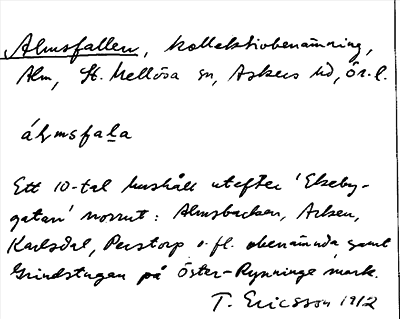 Almsfallen, kollektivbenämning,
Alm, St. Mellösa sn, Askers hd, Ör. l.
álmsfala
Ett 10-tal hushåll utefter 'Ekeby-
gatan' norrut: Almsbacken, Asken,
Karlsdal, Perstorp o. fl. obenämnda samt
Grindstugan på Öster-Rynninge mark.
T. Ericsson 1912